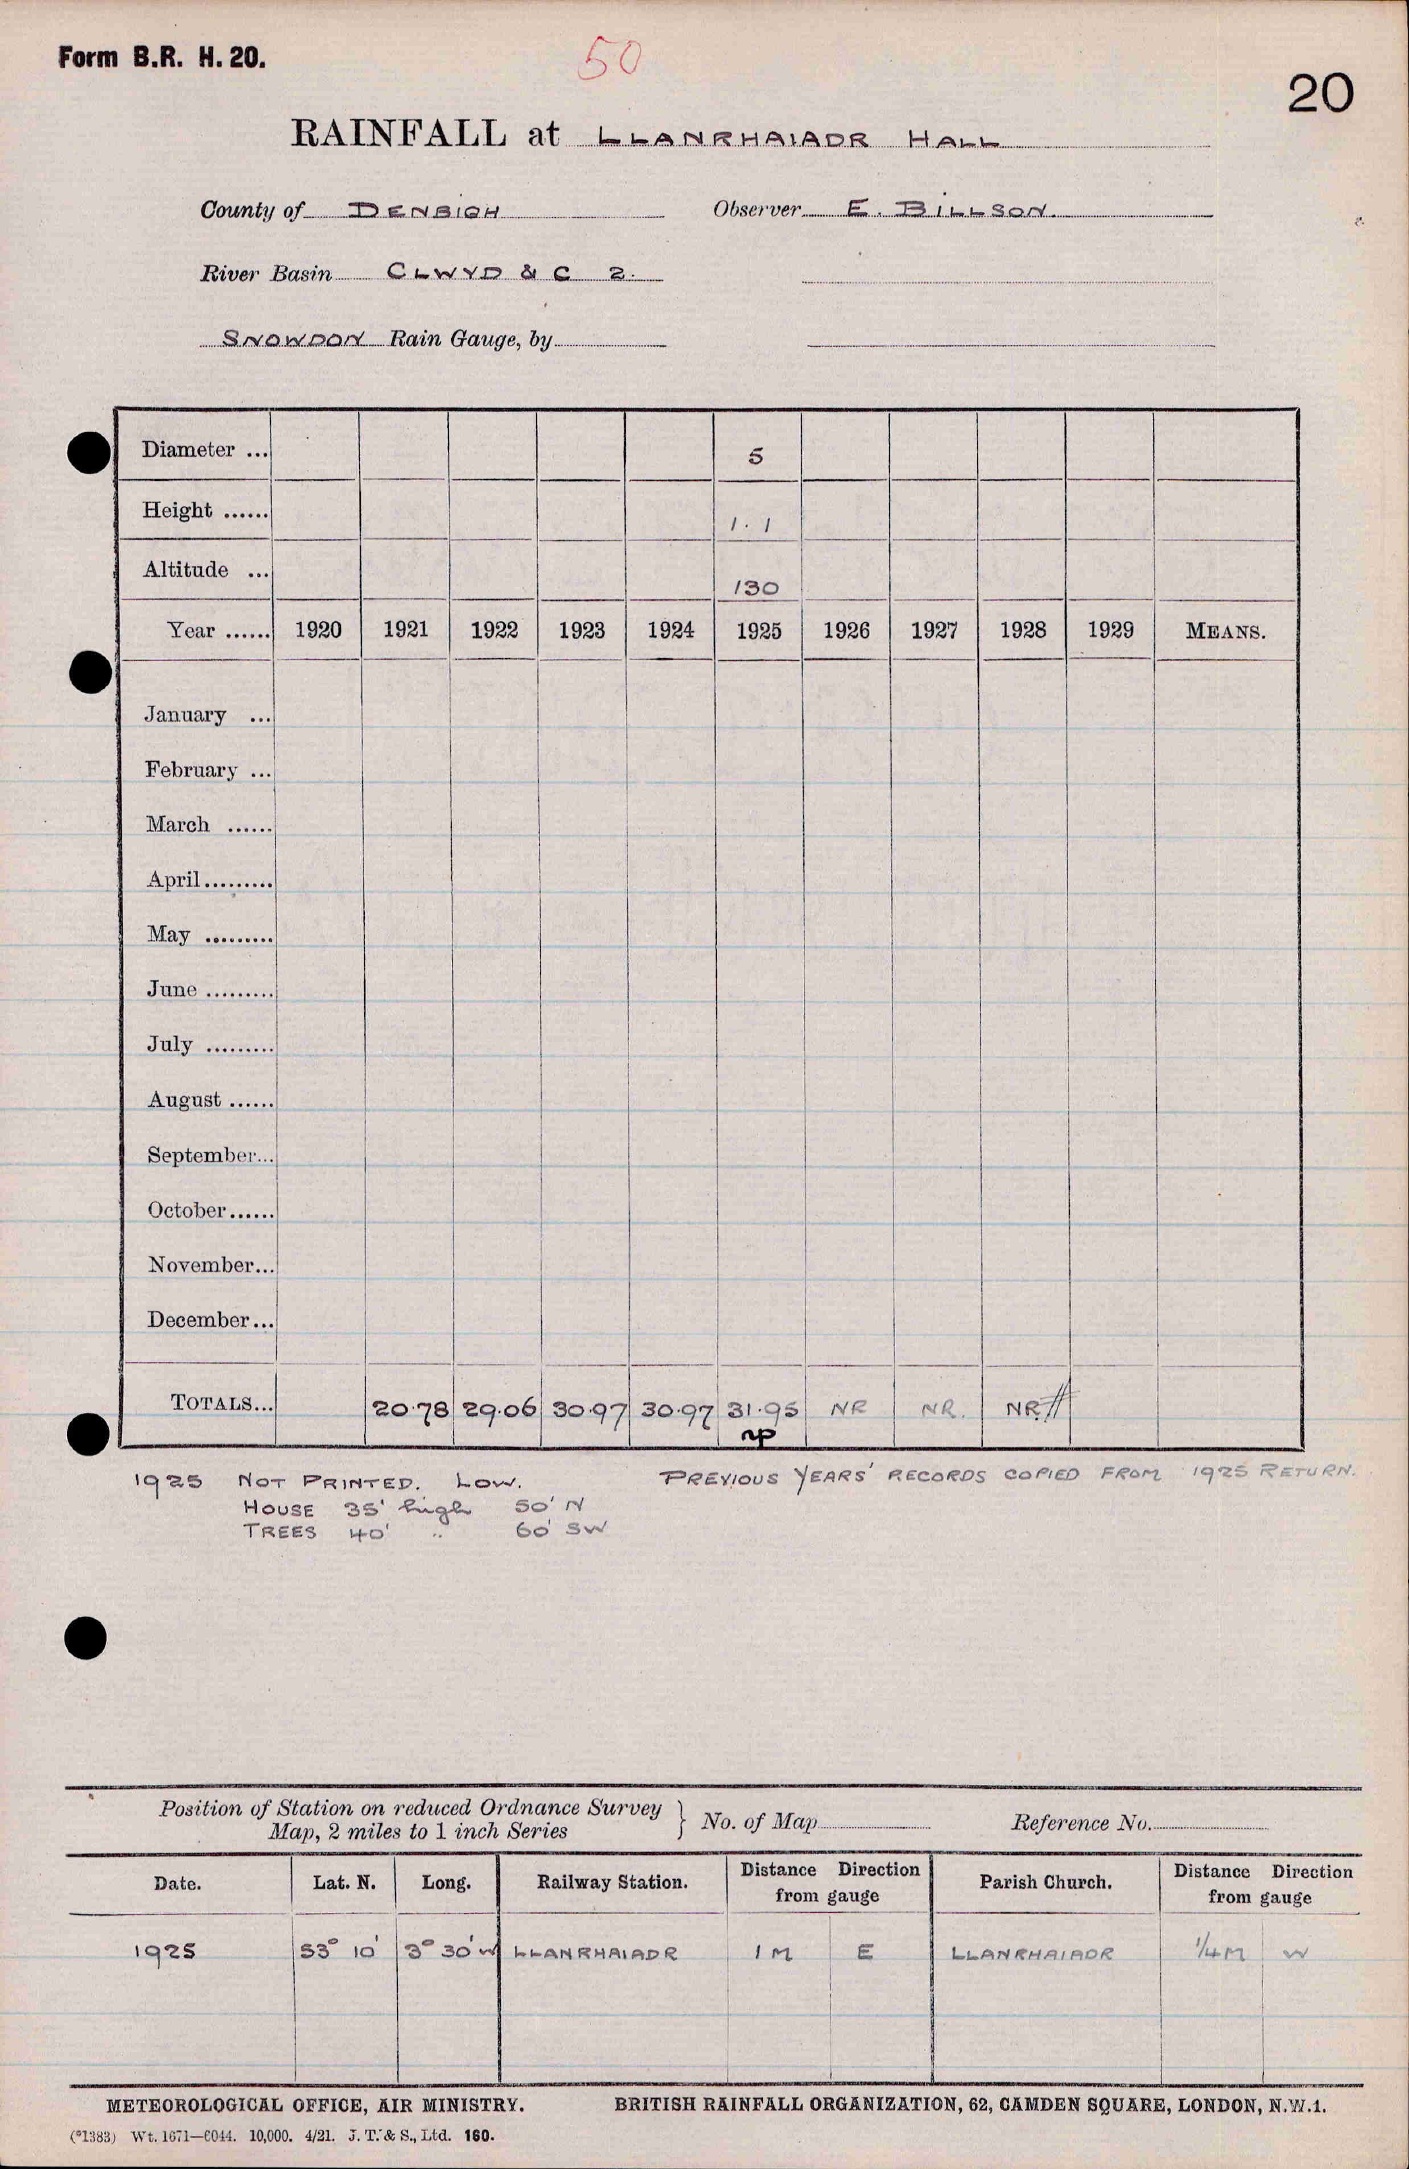 Form B.R. H. 20.
50
20
RAINFALL at LLANRHAIADR HALL
County of DENBIGH Observer E. BILLSON.
River Basin CLWYD & C 2.
SNOWDON Rain Gauge, by
Diameter ... 5
Height ...... 1.1
Altitude ... 130
Year ...... 1920 1921 1922 1923 1924 1925 1926 1927 1928 1929 MEANS.
January ...
February ...
March ......
April.........
May .........
June .........
July .........
August ......
September...
October......
November...
December...
TOTALS... 20.78 29.06 30.97 30.97 31.95 NR NR. NR.
np
1925 NOT PRINTED. LOW. PREVIOUS YEARS' RECORDS COPIED FROM 1925 RETURN.
HOUSE 35' high 50' N
TREES 40' " 60' SW
Position of Station on reduced Ordnance Survey
Map, 2 miles to 1 inch Series } No. of Map Reference No.
Date. Lat. N. Long. Railway Station. Distance Direction from gauge Parish Church. Distance Direction from gauge
1925 53° 10' 3° 30' W LLANRHAIADR 1 M E LLANRHAIADR 1/4 M W
METEOROLOGICAL OFFICE, AIR MINISTRY. BRITISH RAINFALL ORGANIZATION, 62, CAMDEN SQUARE, LONDON, N.W.1.
(*1383) Wt. 1671—6044. 10,000. 4/21. J. T. & S., Ltd. 160.